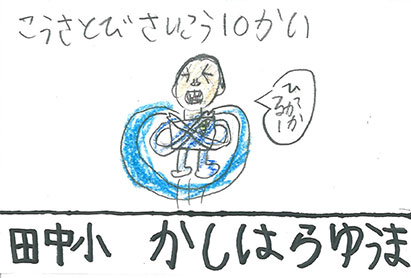 こうさとびさいこう10かい
ひっかかるー
田中小 かしはらゆうま